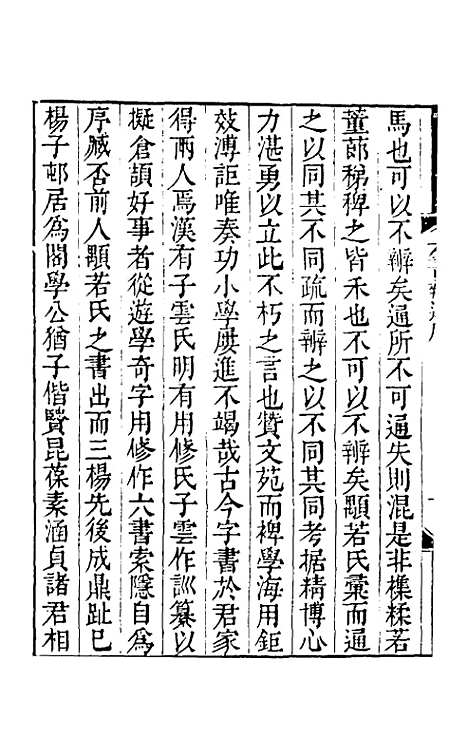 馬也可以不辨矣通所不可通失則混是非櫐糅若
董蓈稊稗之皆禾也不可以不辨矣顯若氏彚而通
之以同其不同疏而辨之以不同其同考据精博心
力湛勇以立此不朽之言也贊文苑而裨學海用鉅
效溥詎唯奏功小學屢進不竭哉古今字書於君家
得兩人焉漢有子雲氏明有用修氏子雲作訓纂以
擬倉頡好事者從遊學奇字用修作六書索隱自為
序臧否前人顯若氏之書出而三楊先後成鼎趾已
楊子邨居為閣學公猶子偕賢昆葆素涵貞諸君相